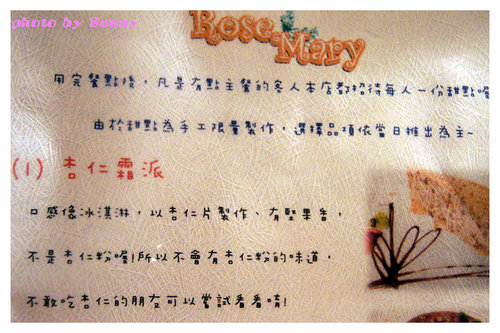 photo by Sunny
Rose Mary
用完餐點後，凡是有點主餐的客人本店都招待每人一份甜點喔
由於甜點為手工限量製作，選擇品項依當日推出為主~
(1) 杏仁霜派
口感像冰淇淋，以杏仁片製作、有堅果香，
不是杏仁粉喔!所以不會有杏仁粉的味道，
不敢吃杏仁的朋友可以嘗試看看唷!